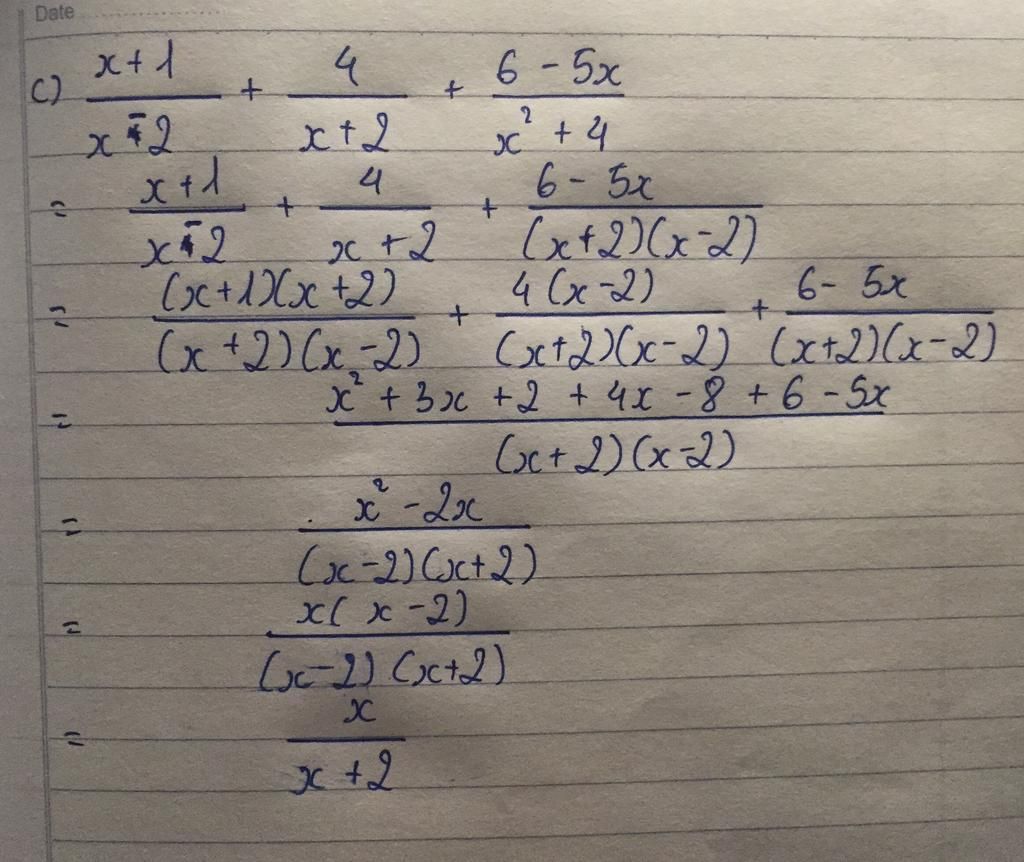 Date
c) (x+1)/(x-2) + 4/(x+2) + (6-5x)/(x²+4)
= (x+1)/(x-2) + 4/(x+2) + (6-5x)/((x+2)(x-2))
= ((x+1)(x+2))/((x+2)(x-2)) + (4(x-2))/((x+2)(x-2)) + (6-5x)/((x+2)(x-2))
= (x²+3x+2+4x-8+6-5x)/((x+2)(x-2))
= (x²-2x)/((x-2)(x+2))
= (x(x-2))/((x-2)(x+2))
= x/(x+2)